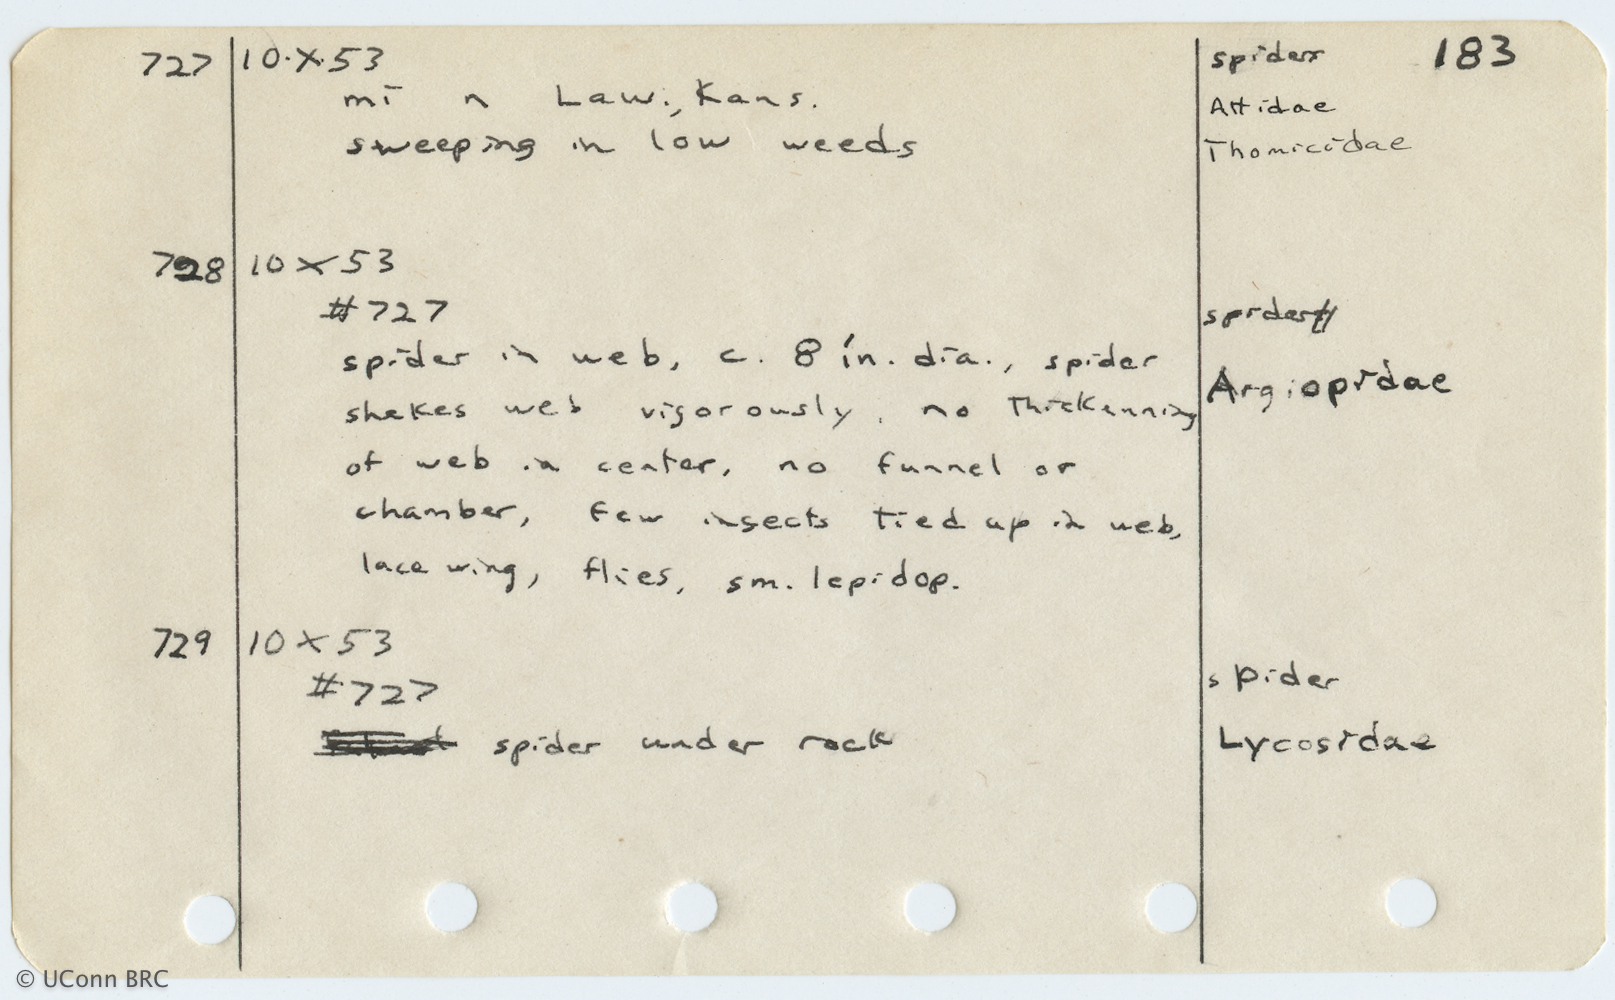 183
727 10·X·53 spiders
mi n Law., Kans. Attidae
sweeping in low weeds Thomicidae
728 10 X 53
#727 spider
spider in web, c. 8 in. dia., spider
shakes web vigorously, no thickenning Argiopidae
of web in center, no funnel or
chamber, few insects tied up in web,
lace wing, flies, sm. lepidop.
729 10 X 53
#727 spider
spider under rock Lycosidae
© UConn BRC